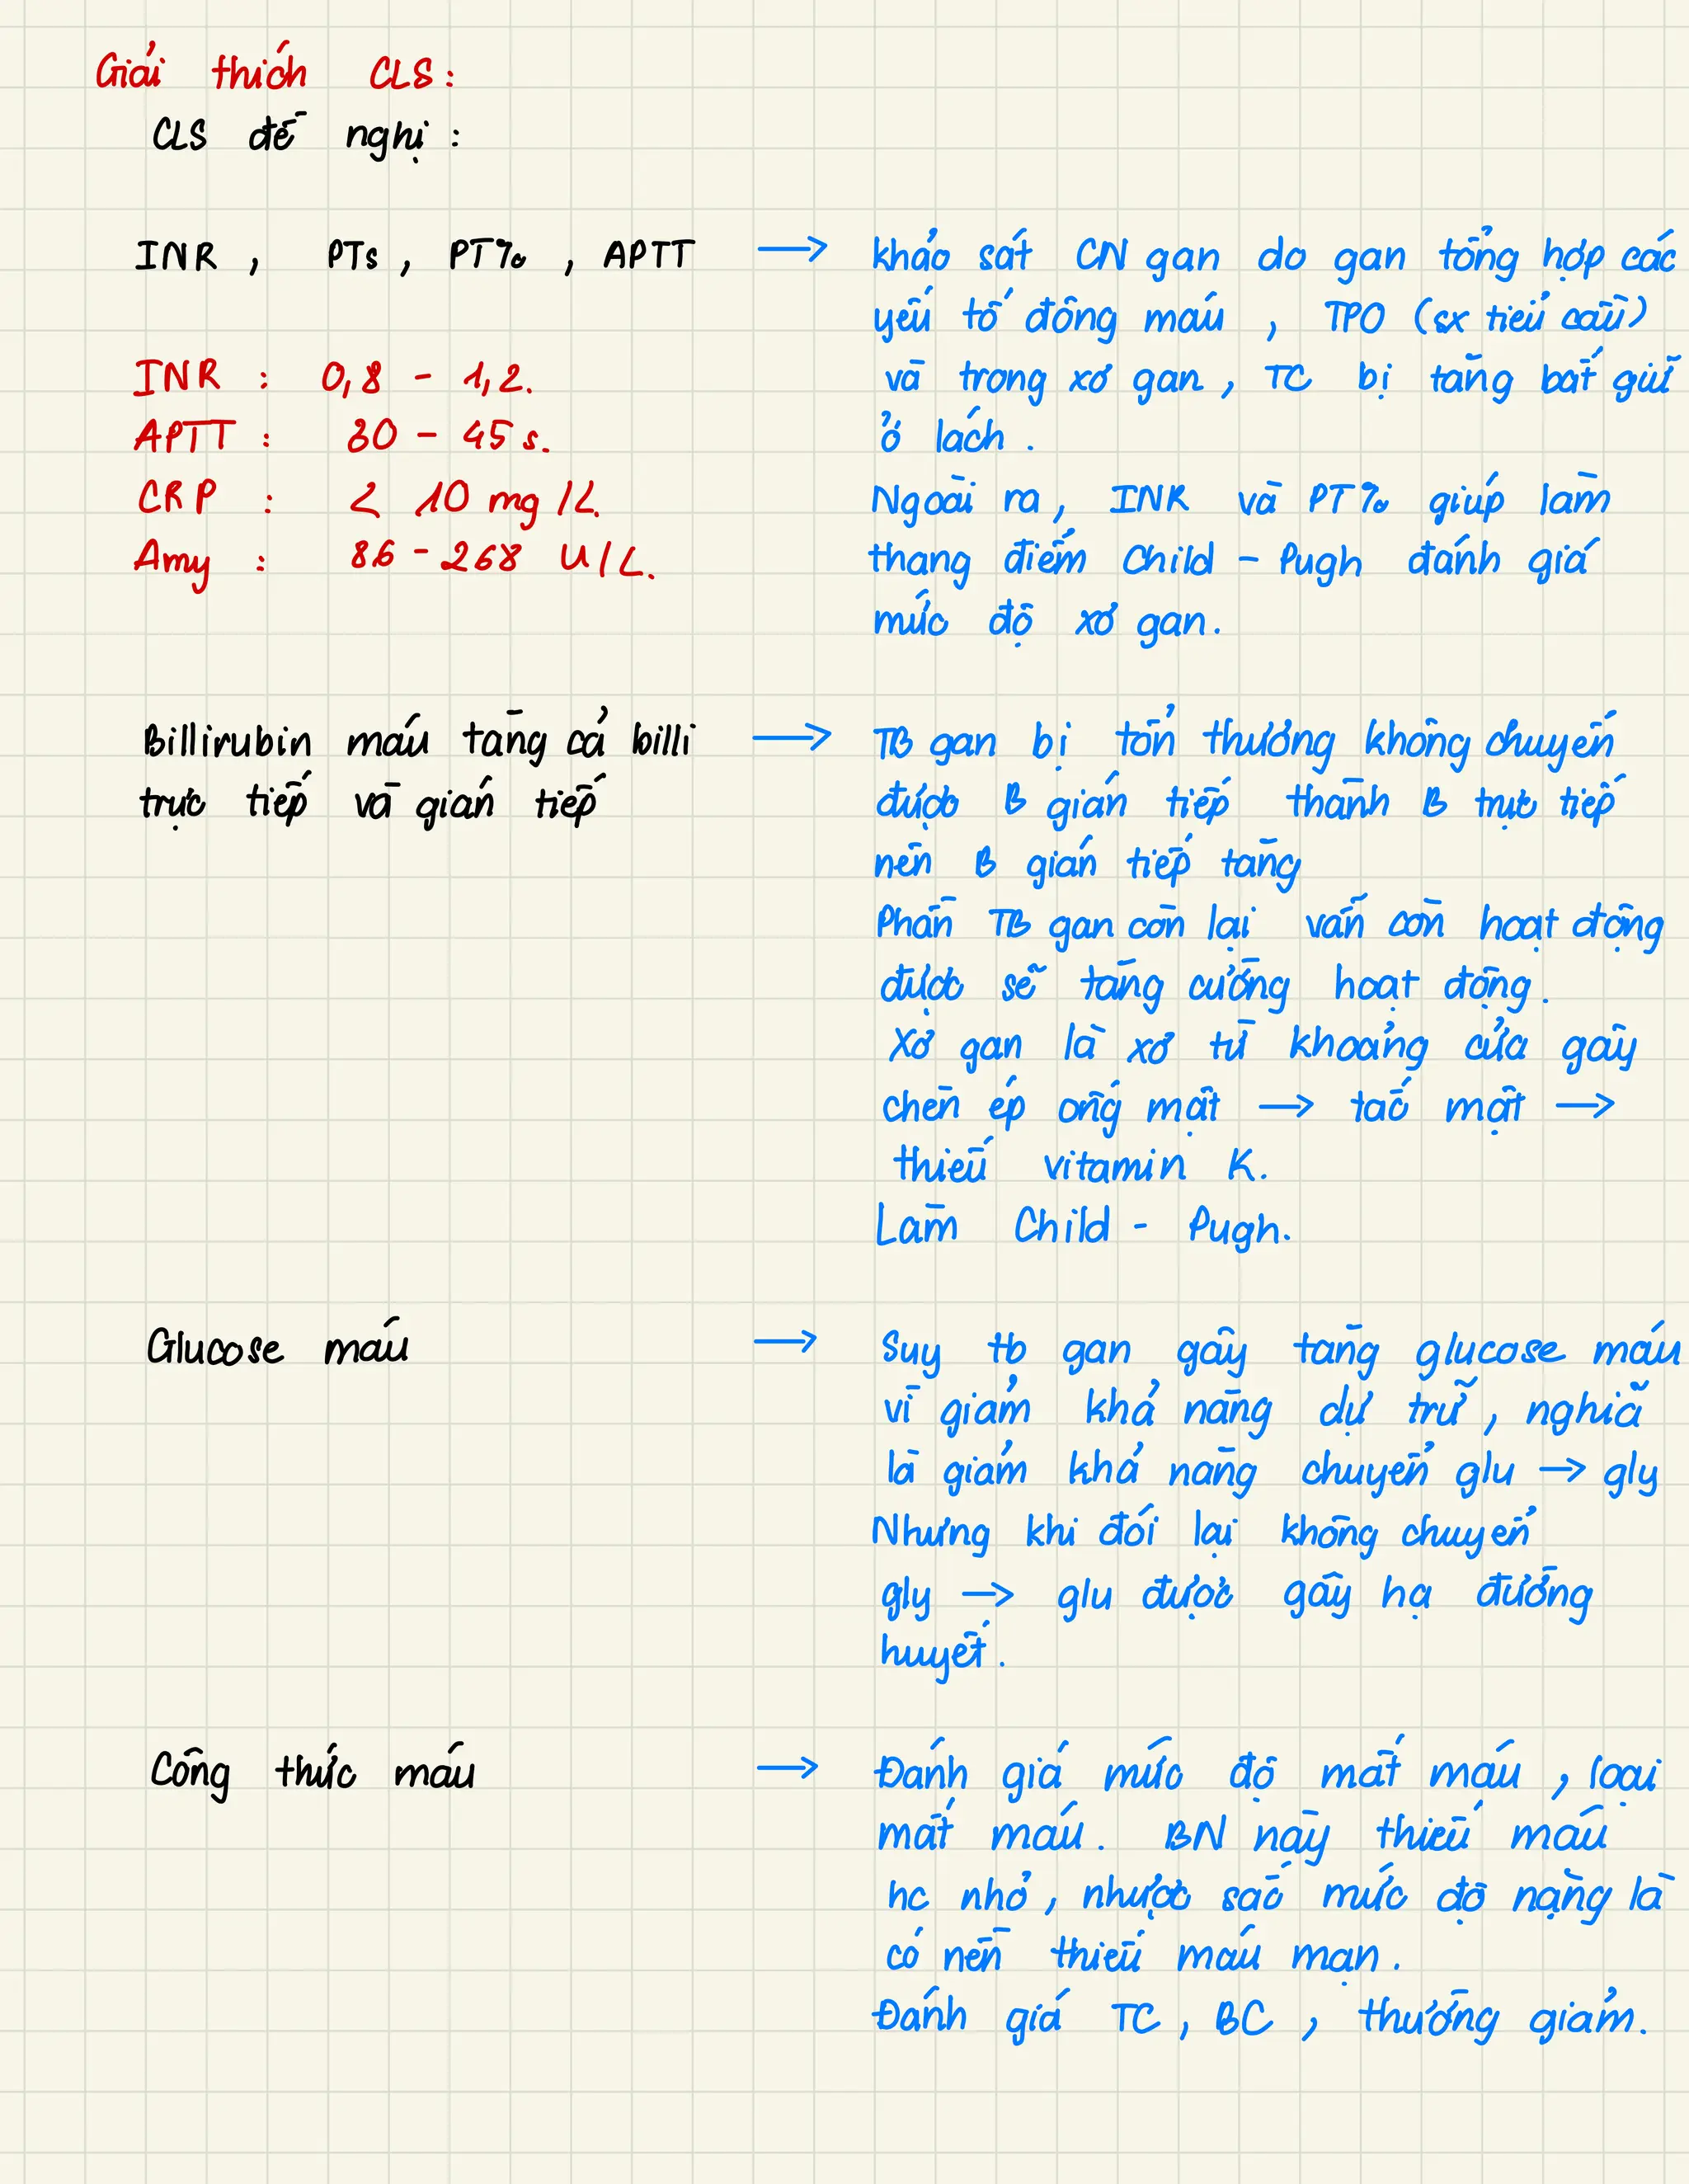 Giải thích CLS:
CLS đề nghị:
INR, PTs, PT%, APTT → khảo sát CN gan do gan tổng hợp các
yếu tố đông máu, TPO (sx tiểu cầu)
INR : 0,8 - 1,2. và trong xơ gan, TC bị tăng bắt giữ
APTT : 30 - 45 s. ở lách.
CRP : < 10 mg/L. Ngoài ra, INR và PT% giúp làm
Amy : 86 - 268 U/L. thang điểm Child - Pugh đánh giá
mức độ xơ gan.
Billirubin máu tăng cả billi → TB gan bị tổn thương không chuyển
trực tiếp và gián tiếp được B gián tiếp thành B trực tiếp
nên B gián tiếp tăng
Phần TB gan còn lại vẫn còn hoạt động
được sẽ tăng cường hoạt động.
Xơ gan là xơ từ khoảng cửa gây
chèn ép ống mật → tắc mật →
thiếu vitamin K.
Làm Child - Pugh.
Glucose máu → Suy tb gan gây tăng glucose máu
vì giảm khả năng dự trữ, nghĩa
là giảm khả năng chuyển glu → gly
Nhưng khi đói lại không chuyển
gly → glu được gây hạ đường
huyết.
Công thức máu → Đánh giá mức độ mất máu, loại
mất máu. BN này thiếu máu
hc nhỏ, nhược sắc mức độ nặng là
có nền thiếu máu mạn.
Đánh giá TC, BC, thường giảm.